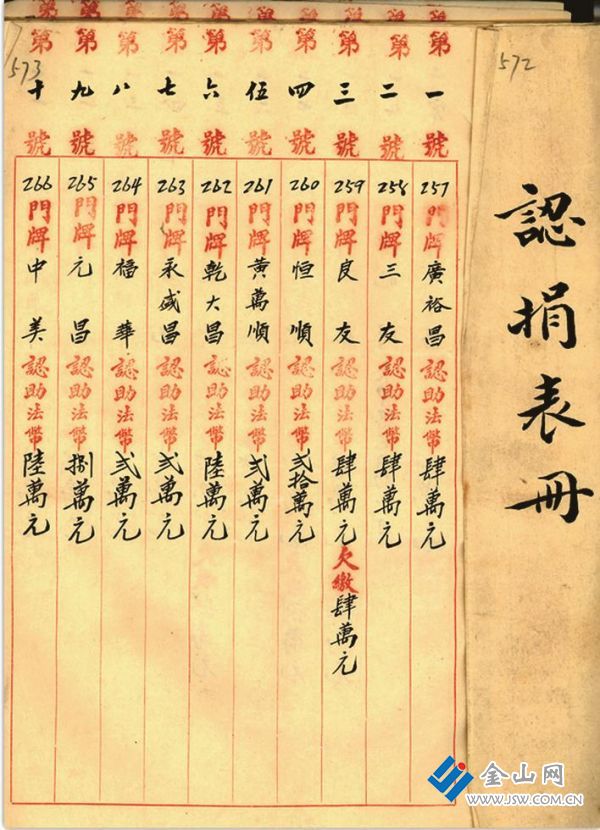 572
認捐表冊
第一號
257門牌廣裕昌認助法幣肆萬元
第二號
258門牌三友認助法幣肆萬元
第三號
259門牌良友認助法幣肆萬元欠繳肆萬元
第四號
260門牌恒順認助法幣弍拾萬元
第伍號
261門牌黃萬順認助法幣弍萬元
第六號
262門牌乾大昌認助法幣陸萬元
第七號
263門牌永盛昌認助法幣弍萬元
第八號
264門牌福華認助法幣弍萬元
第九號
265門牌元昌認助法幣捌萬元
573
第十號
266門牌中美認助法幣陸萬元
金山网
WWW.JSW.COM.CN